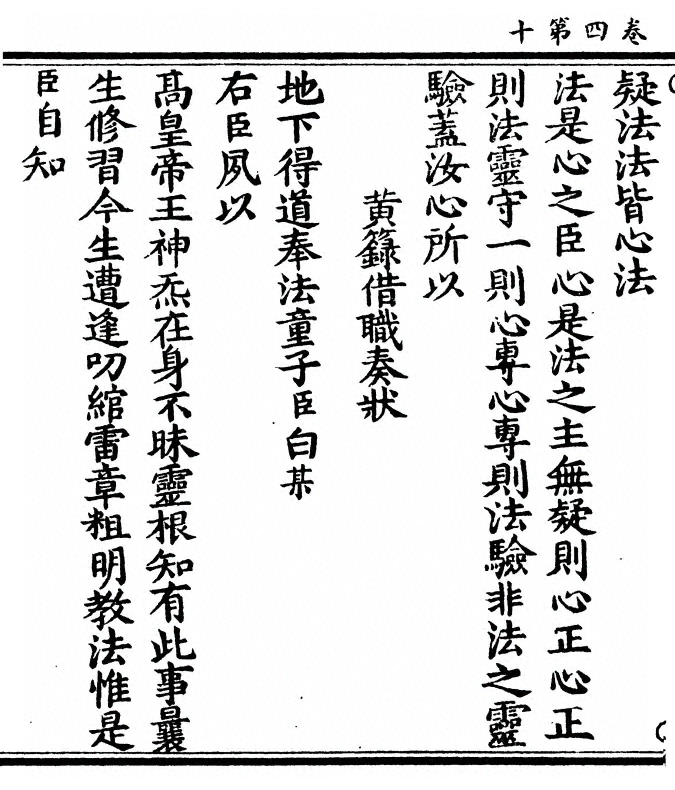 卷四第十
疑法法皆心法
法是心之臣心是法之主無疑則心正心正
則法靈守一則心專心專則法驗非法之靈
驗蓋汝心所以
黃籙借職奏狀
地下得道奉法童子臣白某
右臣夙以
髙皇帝王神炁在身不昧靈根知有此事曩
生修習今生遭逢叨綰雷章粗明教法惟是
臣自知